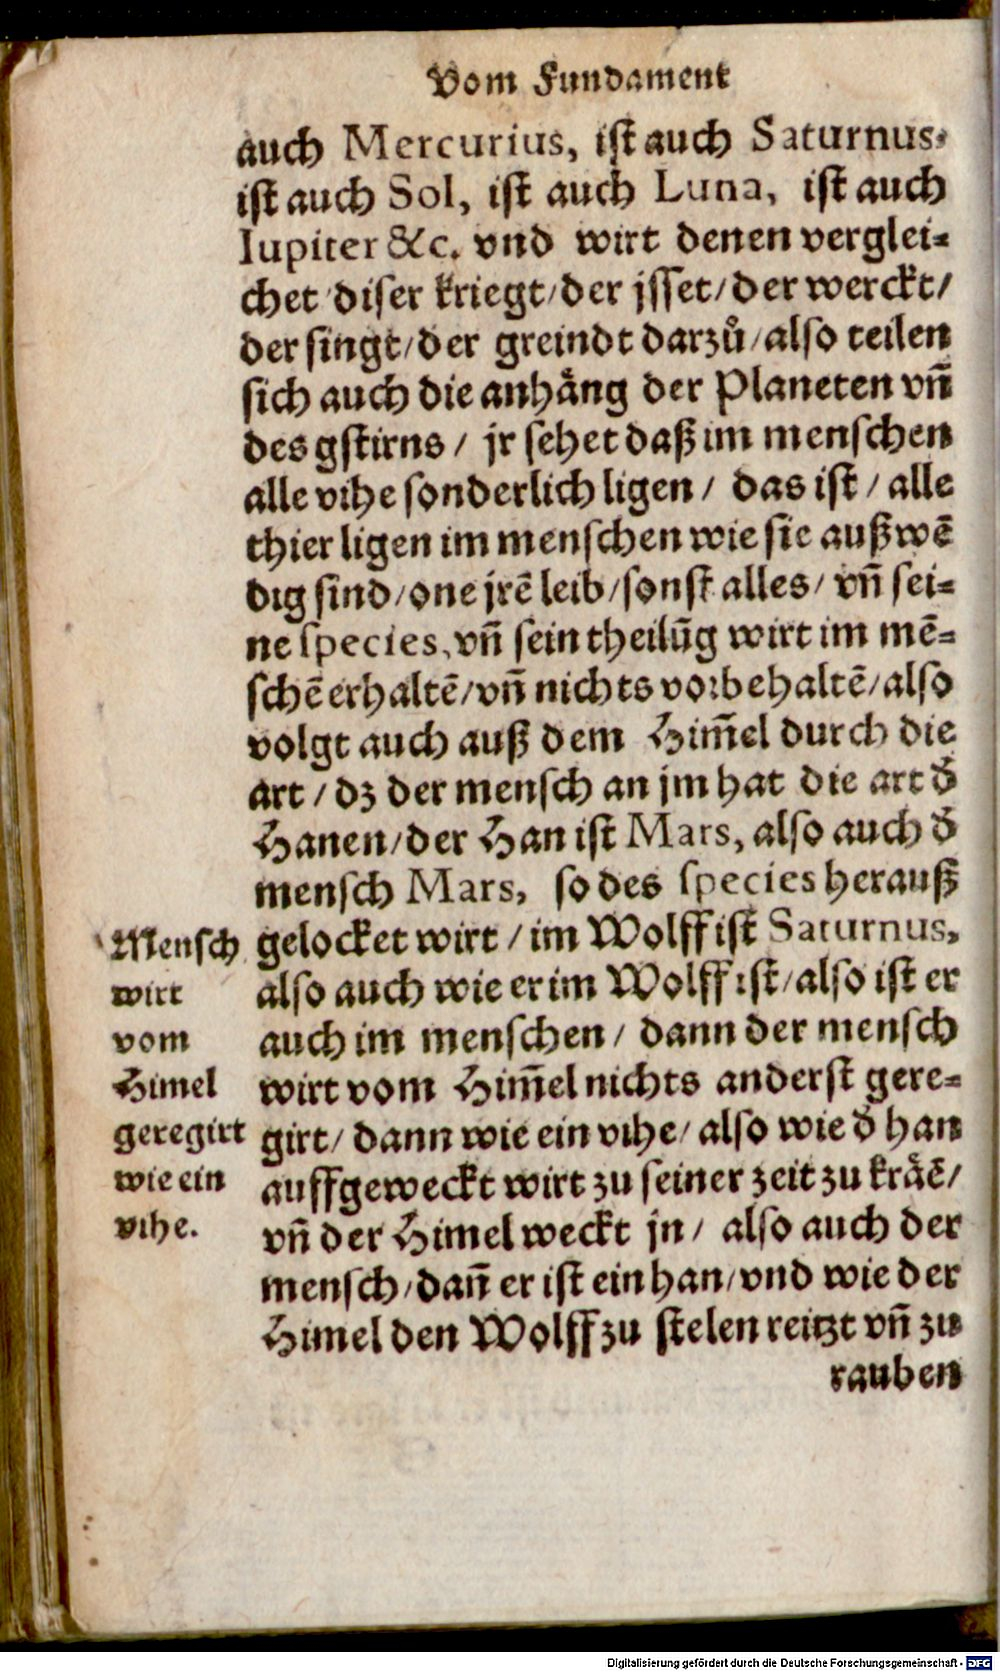 Vom Fundament
auch Mercurius, ist auch Saturnus,
ist auch Sol, ist auch Luna, ist auch
Iupiter &c. vnd wirt denen verglei-
chet diser kriegt/der jsset/der werckt/
der singt/der greindt darzů/also teilen
sich auch die anhång der Planeten vñ
des gstirns / jr sehet daß im menschen
alle vihe sonderlich ligen / das ist / alle
thier ligen im menschen wie sie außwē
dig sind/one jrē leib/sonst alles/ vñ sei-
ne species, vñ sein theilũg wirt im mē-
schē erhaltē/vñ nichts vorbehaltē/also
volgt auch auß dem Him̃el durch die
art / dz der mensch an jm hat die art d̄
Hanen/der Han ist Mars, also auch d̄
mensch Mars, so des species herauß
gelocket wirt / im Wolff ist Saturnus,
also auch wie er im Wolff ist/also ist er
auch im menschen / dann der mensch
wirt vom Him̃el nichts anderst gere-
girt/ dann wie ein vihe/ also wie d̄ han
auffgeweckt wirt zu seiner zeit zu kråē/
vñ der Himel weckt jn / also auch der
mensch/dañ er ist ein han/vnd wie der
Himel den Wolff zu stelen reitzt vñ zu
rauben
Mensch
wirt
vom
Himel
geregirt
wie ein
vihe.
Digitalisierung gefördert durch die Deutsche Forschungsgemeinschaft - DFG